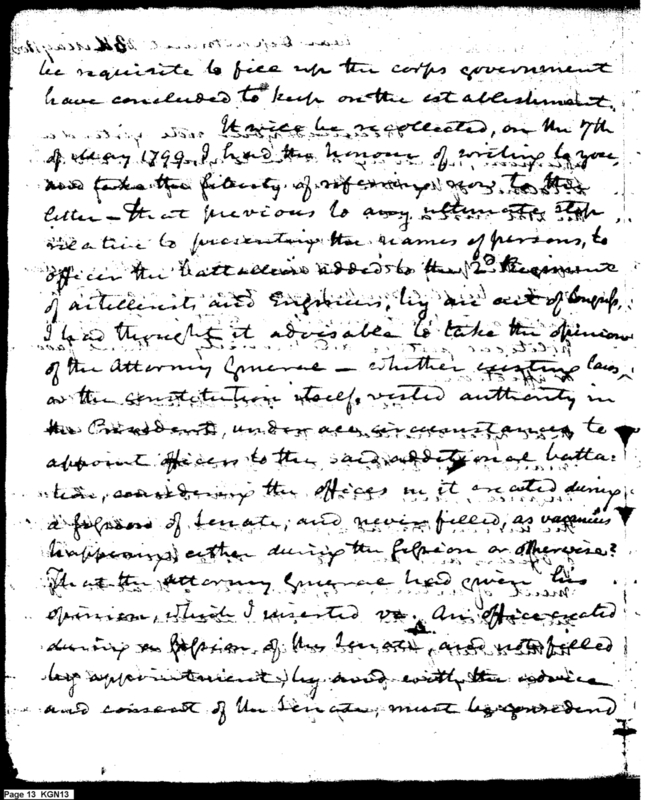 be requisite to fill up the corps government
have concluded to keep on the establishment.
It will be recollected, on the 7th
of May 1799 I had the honour of writing to you,
and take the liberty of referring now to the
letter — that previous to any ultimate step
relative to presenting the names of persons, to
officer the battalion added to the 2d Regiment
of artillerists and Engineers, by an act of Congress,
I had thought it advisable to take the opinion
of the Attorney General — whether existing laws,
or the constitution itself, vested authority in
the President, under all circumstances to
appoint officers to the said additional batta-
lion, considering the offices in it created during
a session of Senate, and never filled, as vacancies
happening either during the session or otherwise?
That the Attorney General had given his
opinion, which I inserted vz. An office created
during a session of the Senate, and not filled
by appointment, by and with the advice
and consent of the Senate, must be considered
Page 13 KGN13